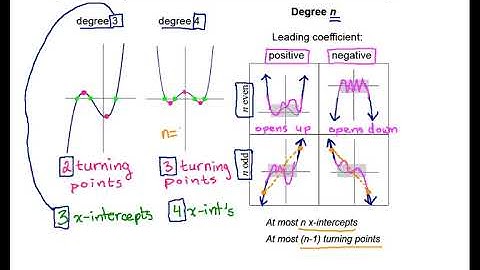 degree 3
degree 4
Degree n
Leading coefficient:
positive
negative
n even
opens up
opens down
n=
n odd
2 turning
points
3 turning
points
3 x-intercepts
4 x-int's
At most n x-intercepts
At most (n-1) turning points